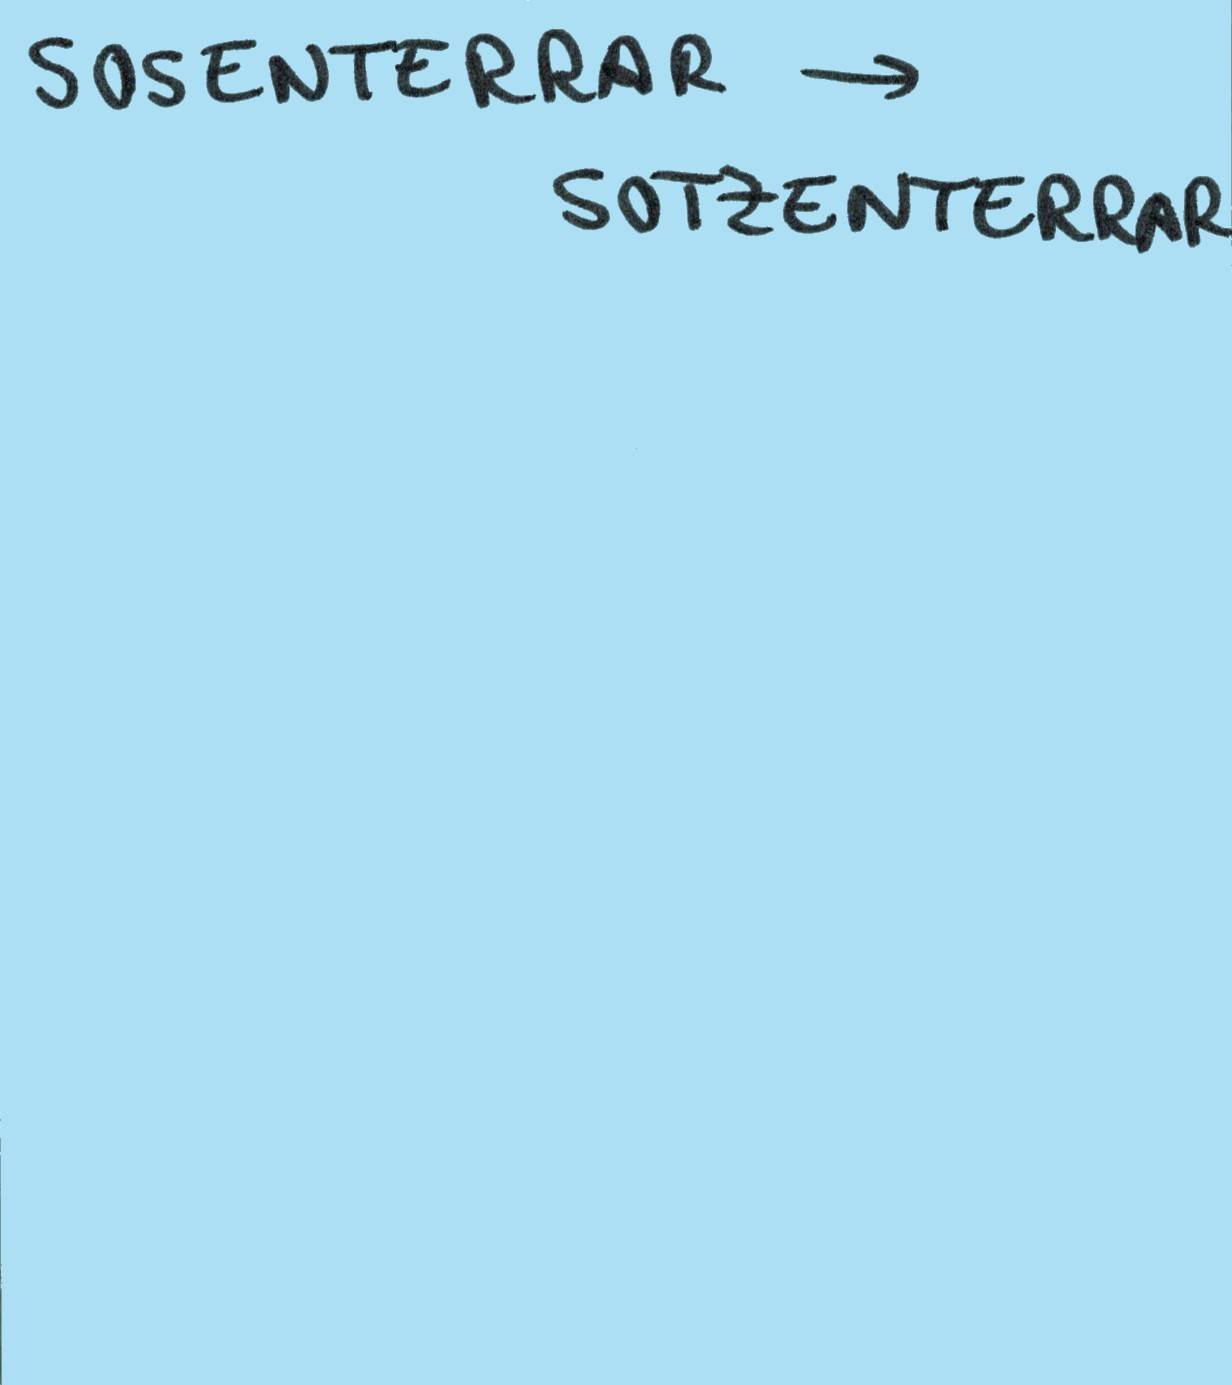 SOSENTERRAR →
SOTZENTERRAR